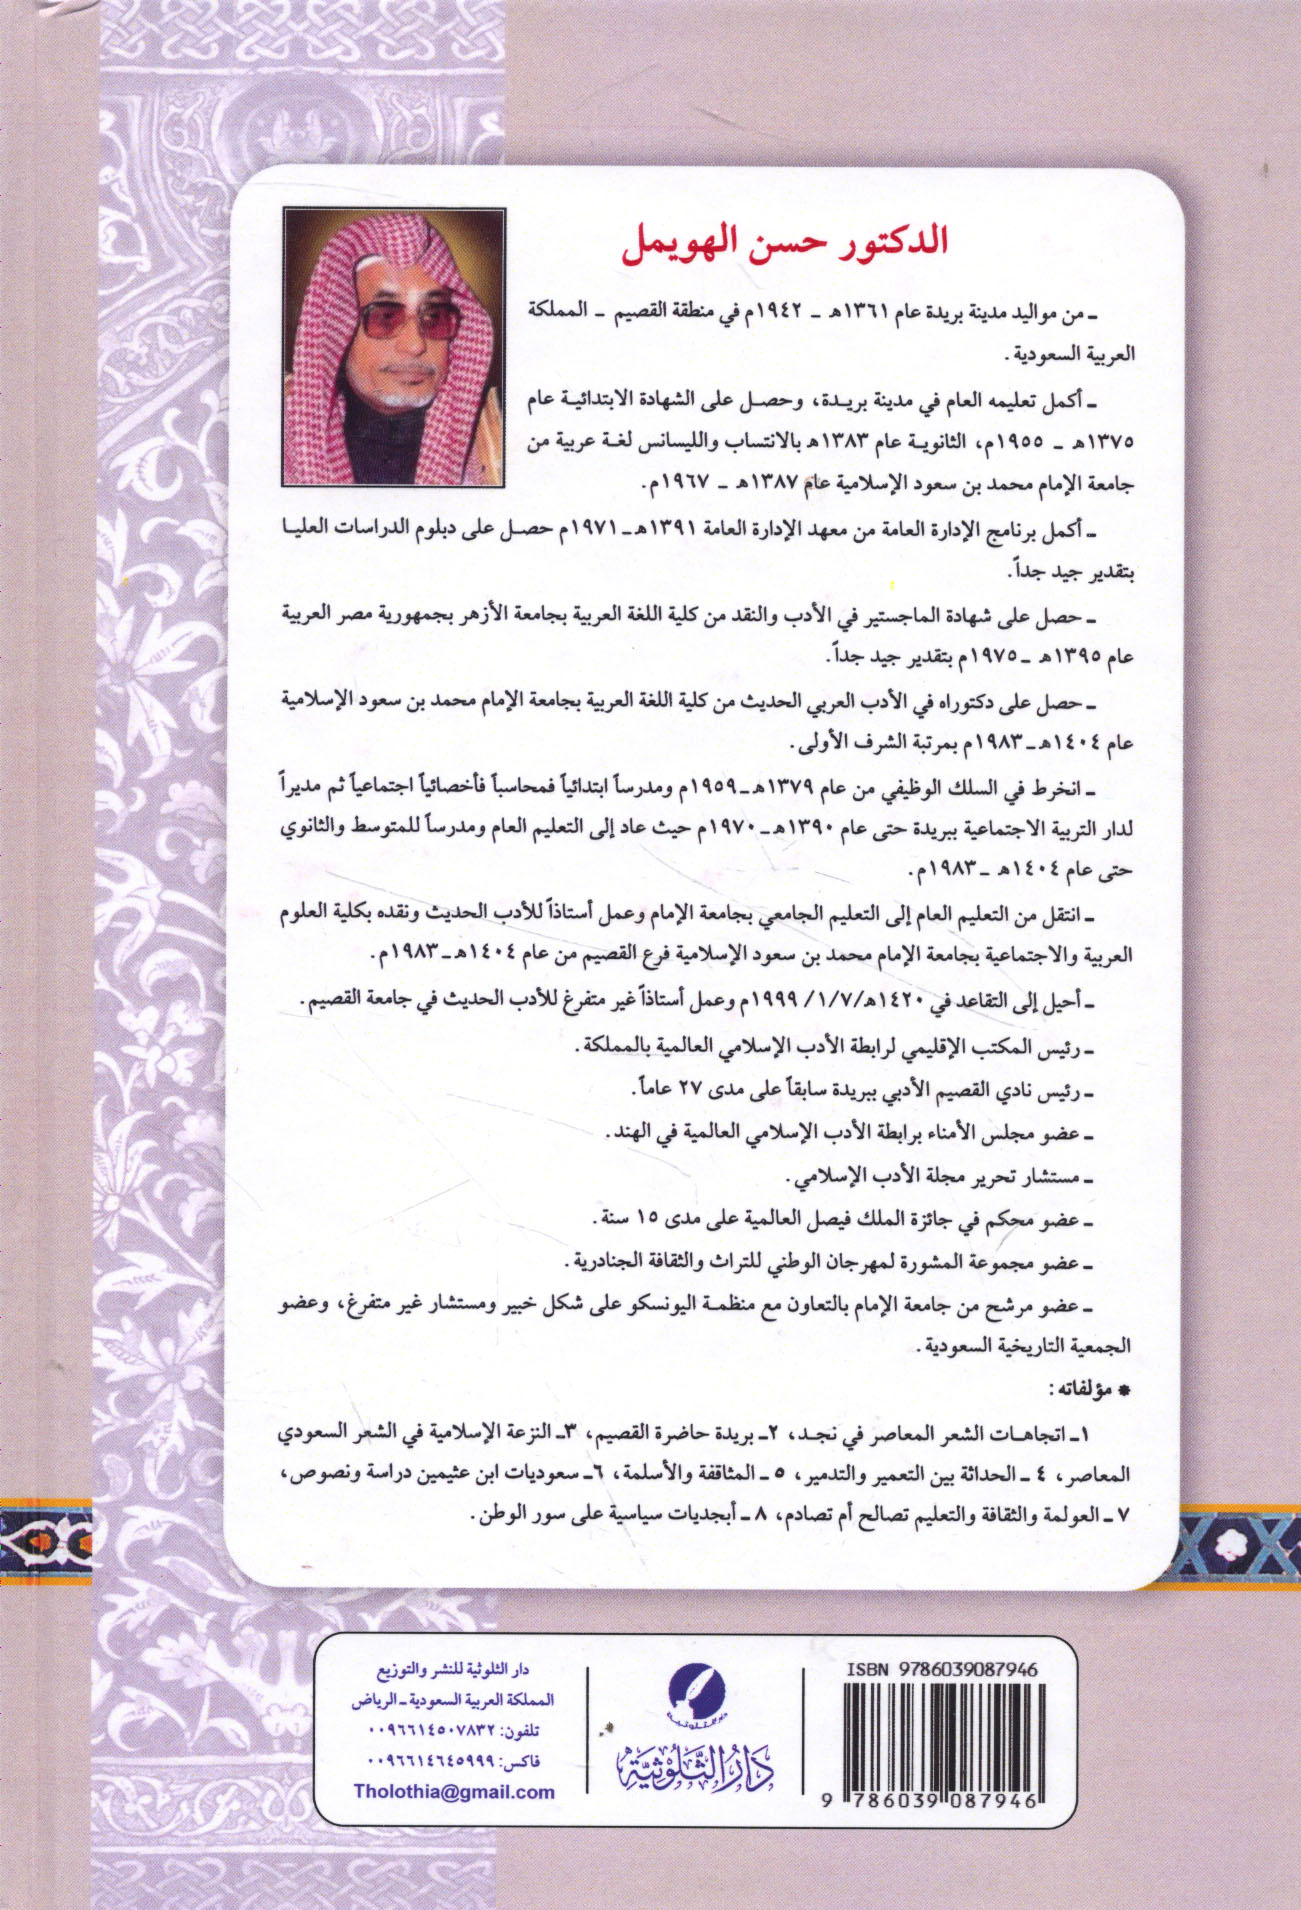 الدكتور حسن الهويمل
ـ من مواليد مدينة بريدة عام ١٣٦١هـ ـ ١٩٤٢م في منطقة القصيم ـ المملكة
العربية السعودية.
ـ أكمل تعليمه العام في مدينة بريدة، وحصل على الشهادة الابتدائية عام
١٣٧٥هـ ـ ١٩٥٥م، الثانوية عام ١٣٨٣هـ بالانتساب والليسانس لغة عربية من
جامعة الإمام محمد بن سعود الإسلامية عام ١٣٨٧هـ ـ ١٩٦٧م.
ـ أكمل برنامج الإدارة العامة من معهد الإدارة العامة ١٣٩١هـ ـ ١٩٧١م حصل على دبلوم الدراسات العليا
بتقدير جيد جداً.
ـ حصل على شهادة الماجستير في الأدب والنقد من كلية اللغة العربية بجامعة الأزهر بجمهورية مصر العربية
عام ١٣٩٥هـ ـ ١٩٧٥م بتقدير جيد جداً.
ـ حصل على دكتوراه في الأدب العربي الحديث من كلية اللغة العربية بجامعة الإمام محمد بن سعود الإسلامية
عام ١٤٠٤هـ ـ ١٩٨٣م بمرتبة الشرف الأولى.
ـ انخرط في السلك الوظيفي من عام ١٣٧٩هـ ـ ١٩٥٩م ومدرساً ابتدائياً فمحاسباً فأخصائياً اجتماعياً ثم مديراً
لدار التربية الاجتماعية ببريدة حتى عام ١٣٩٠هـ ـ ١٩٧٠م حيث عاد إلى التعليم العام ومدرساً للمتوسط والثانوي
حتى عام ١٤٠٤هـ ـ ١٩٨٣م.
ـ انتقل من التعليم العام إلى التعليم الجامعي بجامعة الإمام وعمل أستاذاً للأدب الحديث ونقده بكلية العلوم
العربية والاجتماعية بجامعة الإمام محمد بن سعود الإسلامية فرع القصيم من عام ١٤٠٤هـ ـ ١٩٨٣م.
ـ أحيل إلى التقاعد في ١٤٢٠هـ/١/٧/ ١٩٩٩م وعمل أستاذاً غير متفرغ للأدب الحديث في جامعة القصيم.
ـ رئيس المكتب الإقليمي لرابطة الأدب الإسلامي العالمية بالمملكة.
ـ رئيس نادي القصيم الأدبي ببريدة سابقاً على مدى ٢٧ عاماً.
ـ عضو مجلس الأمناء برابطة الأدب الإسلامي العالمية في الهند.
ـ مستشار تحرير مجلة الأدب الإسلامي.
ـ عضو محكم في جائزة الملك فيصل العالمية على مدى ١٥ سنة.
ـ عضو مجموعة المشورة لمهرجان الوطني للتراث والثقافة الجنادرية.
ـ عضو مرشح من جامعة الإمام بالتعاون مع منظمة اليونسكو على شكل خبير ومستشار غير متفرغ، وعضو
الجمعية التاريخية السعودية.
* مؤلفاته:
١ـ اتجاهات الشعر المعاصر في نجد، ٢ـ بريدة حاضرة القصيم، ٣ـ النزعة الإسلامية في الشعر السعودي
المعاصر، ٤ ـ الحداثة بين التعمير والتدمير، ٥ ـ المثاقفة والأسلمة، ٦ـ سعوديات ابن عثيمين دراسة ونصوص،
٧ ـ العولمة والثقافة والتعليم تصالح أم تصادم، ٨ ـ أبجديات سياسية على سور الوطن.
ISBN 9786039087946
9 786039 087946
دار الثلوثية
دَارُ الثَّلُوثيَّة
دار الثلوثية للنشر والتوزيع
المملكة العربية السعودية ـ الرياض
تلفون: ٠٠٩٦٦١٤٥٠٧٨٣٢
فاكس: ٠٠٩٦٦١٤٦٤٥٩٩٩
Tholothia@gmail.com